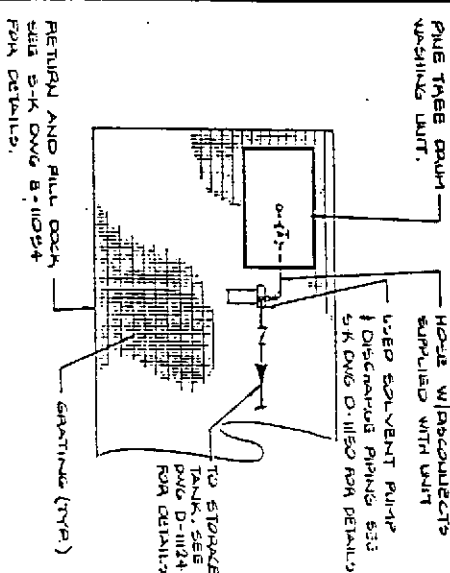 PINE TREE DRUM
WASHING UNIT.
HOSE W/DISCONNECTS
SUPPLIED WITH UNIT
USED SOLVENT PUMP
& DISCHARGE PIPING SEE
S-K DWG D-1150 FOR DETAILS
TO STORAGE
TANK, SEE
DWG D-1124
FOR DETAILS
GRATING (TYP.)
RETURN AND FILL DOCK
SEE S-K DWG B-11054
FOR DETAILS.